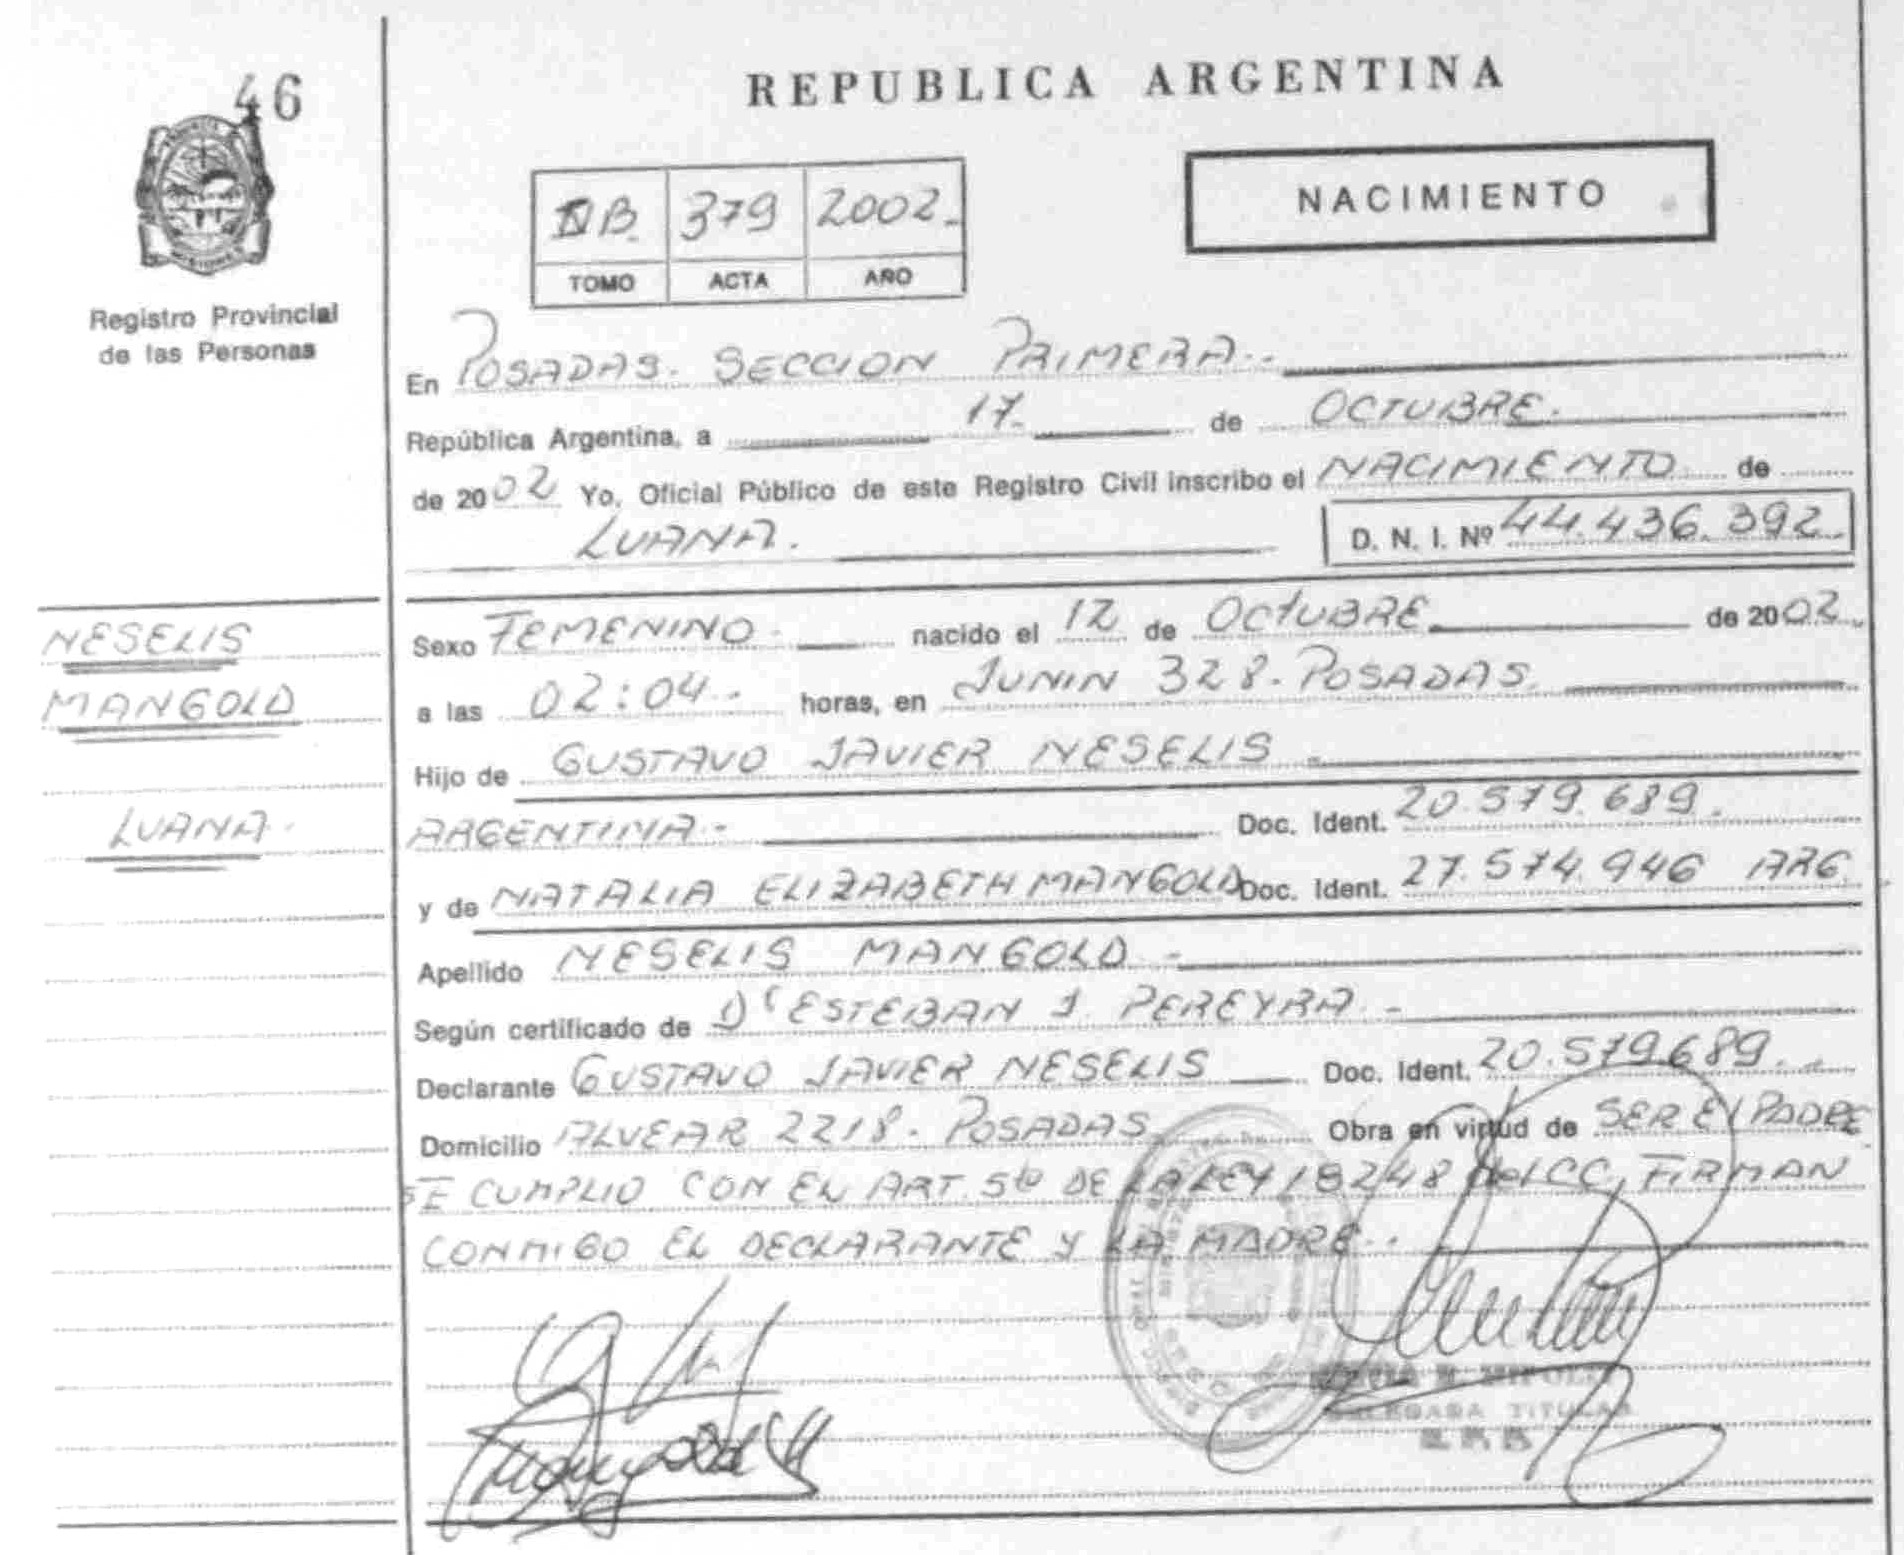 46
Registro Provincial
de las Personas
REPUBLICA ARGENTINA
NACIMIENTO
B. 379 2002.-
TOMO ACTA AÑO
En POSADAS. SECCION PRIMERA.-
República Argentina, a 17.- de OCTUBRE.
de 2002 Yo, Oficial Público de este Registro Civil inscribo el NACIMIENTO de
LUANA.
D. N. I. Nº 44.436.392.-
NESELIS
MANGOLD
LUANA.
Sexo FEMENINO.- nacido el 12 de OCTUBRE de 2002.
a las 02:04.- horas, en JUNIN 328. POSADAS.
Hijo de GUSTAVO JAVIER NESELIS.
ARGENTINA.- Doc. Ident. 20.579.689.-
y de NATALIA ELIZABETH MANGOLD Doc. Ident. 27.574.946 ARG.
Apellido NESELIS MANGOLD.-
Según certificado de ESTEBAN J. PEREYRA.-
Declarante GUSTAVO JAVIER NESELIS Doc. Ident. 20.579.689.-
Domicilio ALVEAR 2218. POSADAS. Obra en virtud de SER EL PADRE
SE CUMPLIO CON EL ART. 5to DE LA LEY 18248 del CC, FIRMAN
CONMIGO EL DECLARANTE Y LA MADRE.-
TITULAR